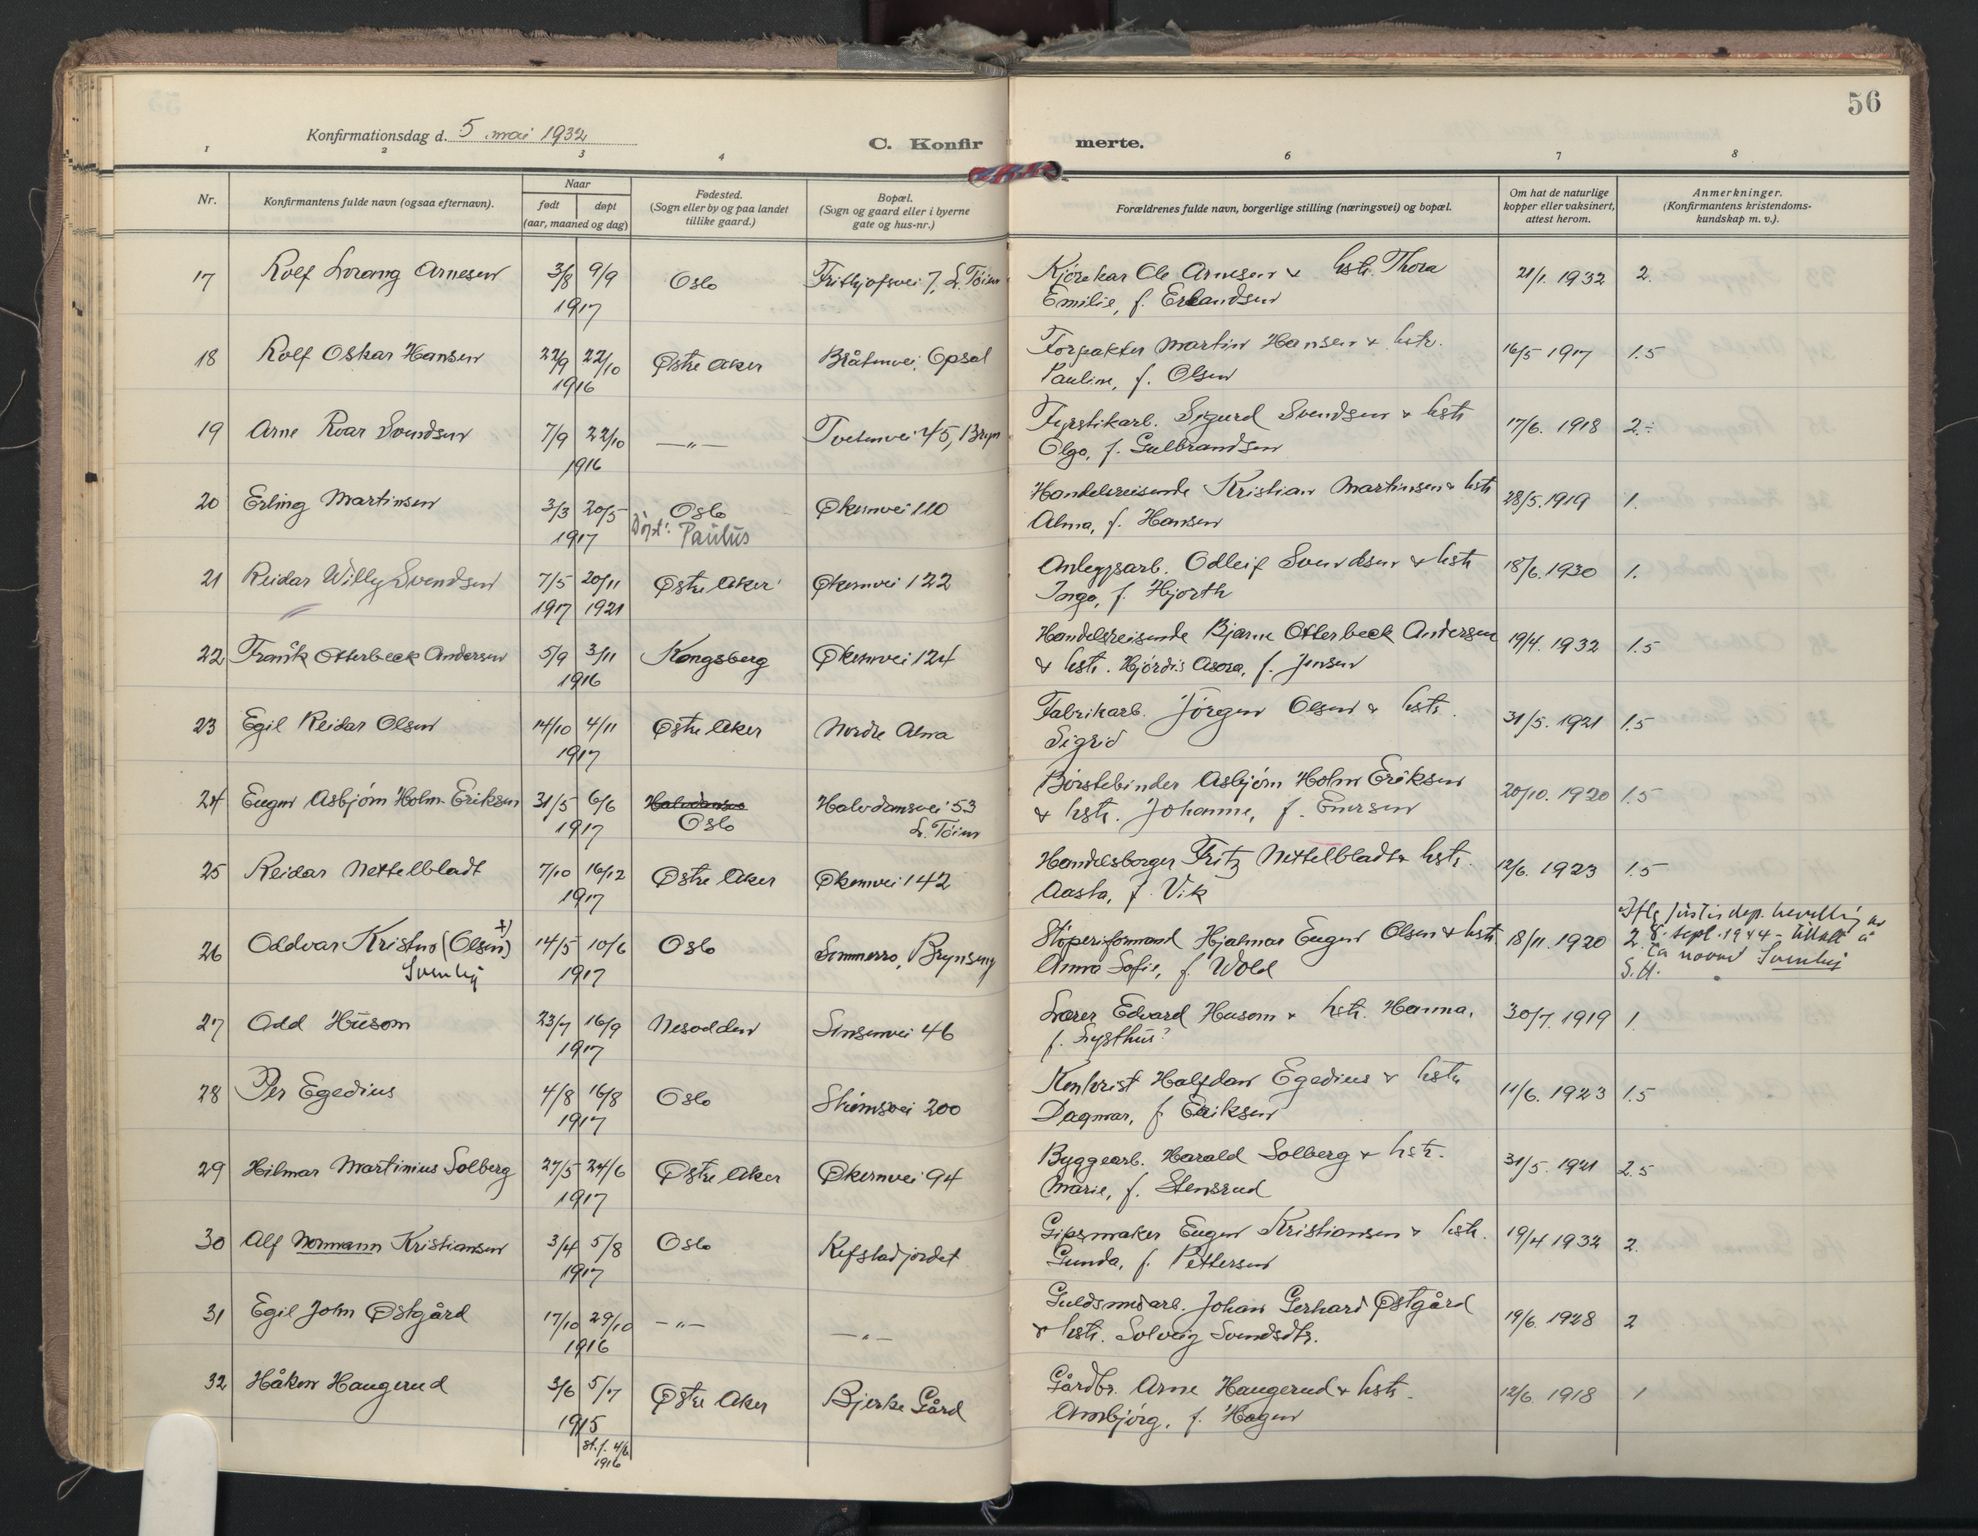 56
Konfirmationsdag d. 5 mai 1932
C. Konfirmerte.
1 2 3 4 6 7 8
Nr.
Konfirmantens fulde navn (ogsaa efternavn).
Naar
født døpt
(aar, maaned og dag)
Fødested.
(Sogn eller by og paa landet
tillike gaard.)
Bopæl.
(Sogn og gaard eller i byerne
gate og hus-nr.)
Forældrenes fulde navn, borgerlige stilling (næringsvei) og bopæl.
Om hat de naturlige
kopper eller vaksinert,
attest herom.
Anmerkninger.
(Konfirmantens kristendoms-
kundskap m. v.).
17 Rolf Lorang Arnesen 3/8 9/9 Oslo Frithjofsvei 7, L. Töien Kjörekar Ole Arnesen & hstr. Thora 21/1. 1932 2.
1917 Emilie, f. Erlandsen
18 Rolf Oskar Hansen 22/9 22/10 Østre Aker Bråtenvei, Opsal Forpakter Martin Hansen & hstr. 16/5 1917 1.5
1916 Pauline, f. Olsen
19 Arne Roar Svendsen 7/9 22/10 —„— Tvetenvei 45, Bryn Fyrstikarb. Sigurd Svendsen & hstr 17/6. 1918 2.÷
1916 Olga, f. Gulbrandsen
20 Erling Martinsen 3/3 20/5 Oslo Økernvei 110 Handelsreisende Kristian Martinsen & hstr 28/5. 1919 1.
1917 Döpt: Paulus Alma, f. Hansen
21 Reidar Willy Svendsen 7/5 20/11 Østre Aker Økernvei 122 Anleggsarb. Odleif Svendsen & hstr 18/6. 1930 1.
1917 1921 Inga, f. Hjorth
22 Frank Otterbeck Andersen 5/9 3/11 Kongsberg Økernvei 124 Handelsreisende Bjarne Otterbeck Andersen 19/4. 1932 1.5
1916 & hstr. Hjördis Asora, f. Jensen
23 Egil Reidar Olsen 14/10 4/11 Østre Aker Nordre Alna Fabrikarb. Jörgen Olsen & hstr. 31/5. 1921 1.5
1917 Sigrid
24 Eugen Asbjørn Holm-Eriksen 31/5 6/6 Halvdansv Halvdansvei 53 Børstebinder Asbjørn Holm Eriksen 20/10. 1920 1.5
1917 Oslo L. Töien & hstr. Johanne, f. Enersen
25 Reidar Nettelbladt 7/10 16/12 Østre Aker Økernvei 142 Handelsborger Fritz Nettelbladt & hstr. 12/6. 1923 1.5
1917 Aasta, f. Vik
26 Oddvar Kristno (Olsen) x) 14/5 10/6 Oslo Sommerro, Brynseng Stöperiformand Hjalmar Eugen Olsen & hstr 18/11. 1920 Iflg justisdep. bevilling av
Svenhij 1917 Anna Sofie, f. Wold 2. 8. sept. 1944 - tillatt å
ta navnet Svenhij
S.H.
27 Odd Husom 23/7 16/9 Nesodden Sinsenvei 46 Lærer Edvard Husom & hstr. Hanna, 30/7. 1919 1.
1917 f. Lysthus?
28 Per Egedius 4/8 16/8 Oslo Strömsvei 200 Kontrist Halfdan Egedius & hstr 11/6. 1923 1.5
1917 Dagmar, f Eriksen
29 Hilmar Martinius Solberg 27/5 24/6 Østre Aker Økernvei 94 Byggearb. Harald Solberg & hstr. 31/5. 1921 2.5
1917 Marie, f. Stensrud
30 Alf Normann Kristiansen 3/4 5/8 Oslo Refstadjordet Gipsmaker Eugen Kristiansen & hstr. 19/4 1932 2.
1917 Gunda, f. Pettersen
31 Egil John Østgård 17/10 29/10 —„— —„— Guldsmedarb. Johan Gerhard Østgård 19/6. 1928 2
1916 & hstr. Solveig Svendsdtr.
32 Håkon Haugerud 3/6 5/7 Østre Aker Bjerke Gård Gårdbr. Arne Haugerud & hstr. 12/6. 1918 1
1915 Annbjörg, f. Hagen
st. f. 4/6
1916